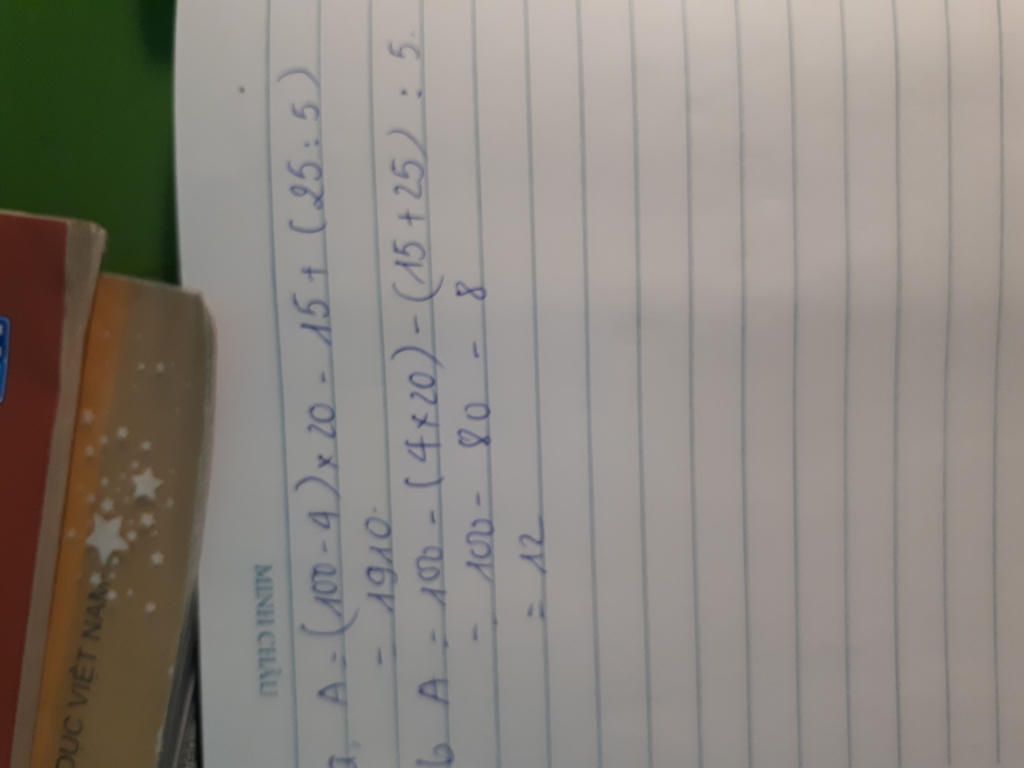 MINH CHÂU
a, A = (100 - 4) x 20 - 15 + (25 : 5)
= 1910.
b A = 100 - (4 x 20) - (15 + 25) : 5.
= 100 - 80 - 8
= 12
DỤC VIỆT NAM